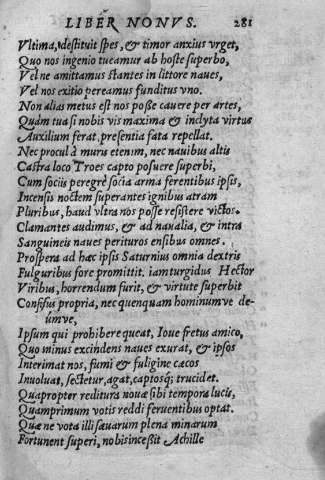 LIBER NONVS. 281
Vltima, destituit spes, & timor anxius vrget,
Quo nos ingenio tueamur ab hoste superbo,
Vel ne amittamus stantes in littore naues,
Vel nos exitio pereamus funditus vno.
Non alias metus est nos posse cauere per artes,
Quàm tua si nobis vis maxima & inclyta virtus
Auxilium ferat, presentia fata repellat.
Nec procul à muris etenim, nec nauibus altis
Castra loco Troes capto posuere superbi,
Cum sociis peregrè socia arma ferentibus ipsis,
Incensis noctem superantes ignibus atram
Pluribus, haud vltra nos posse resistere victos.
Clamantes audimus, & ad naualia, & intra
Sanguineis naues perituros ensibus omnes.
Prospera ad hæc ipsis Saturnius omnia dextris
Fulguribus fore promittit. iam turgidus Hector
Viribus, horrendum furit, & virtute superbit
Confisus propria, nec quenquam hominumve de-
úmve,
Ipsum qui prohibere queat, Ioue fretus amico,
Quo minus excindens naues exurat, & ipsos
Interimat nos, fumi & fuligine cæcos
Inuoluat, sectetur, agat, captosq; trucidet.
Quapropter reditura nouæ sibi tempora lucis,
Quamprimum votis reddi feruentibus optat.
Quæ ne vota illi sæuarum plena minarum
Fortunent superi, nobis incessit Achille